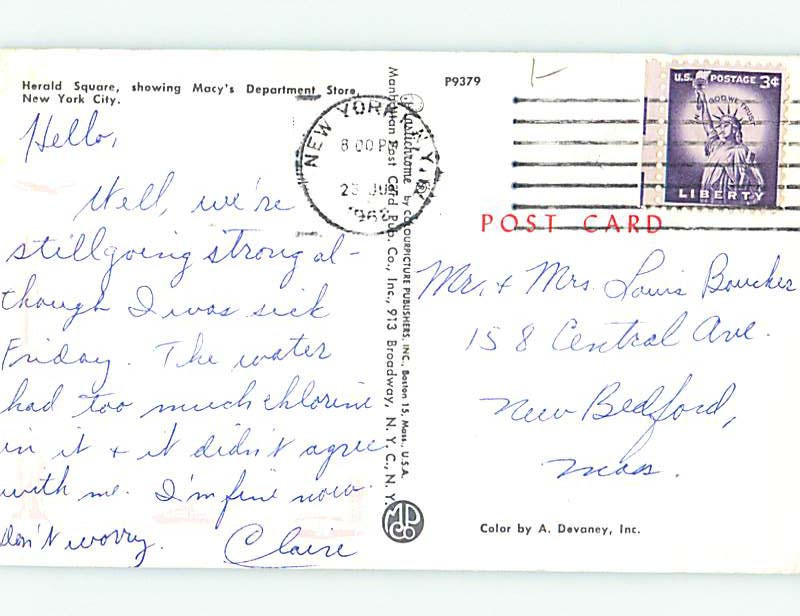 Herald Square, showing Macy's Department Store,
New York City.
Hello,
Well, we're
still going strong al-
though I was sick
Friday. The water
had too much chlorine
in it + it didn't agree
with me. I'm fine now.
Don't worry. Claire
Plastichrome by COLOURPICTURE PUBLISHERS, INC., Boston 15, Mass., U.S.A.
Manhattan Post Card Pub. Co., Inc., 913 Broadway, N. Y. C., N. Y.
MPC
CO
P9379
NEW YORK, N.Y.
8 00 PM
196
U.S. POSTAGE 3¢
IN GOD WE TRUST
LIBERTY
POST CARD
Mr. + Mrs. Louis Boucher
158 Central Ave.
New Bedford,
Mass.
Color by A. Devaney, Inc.